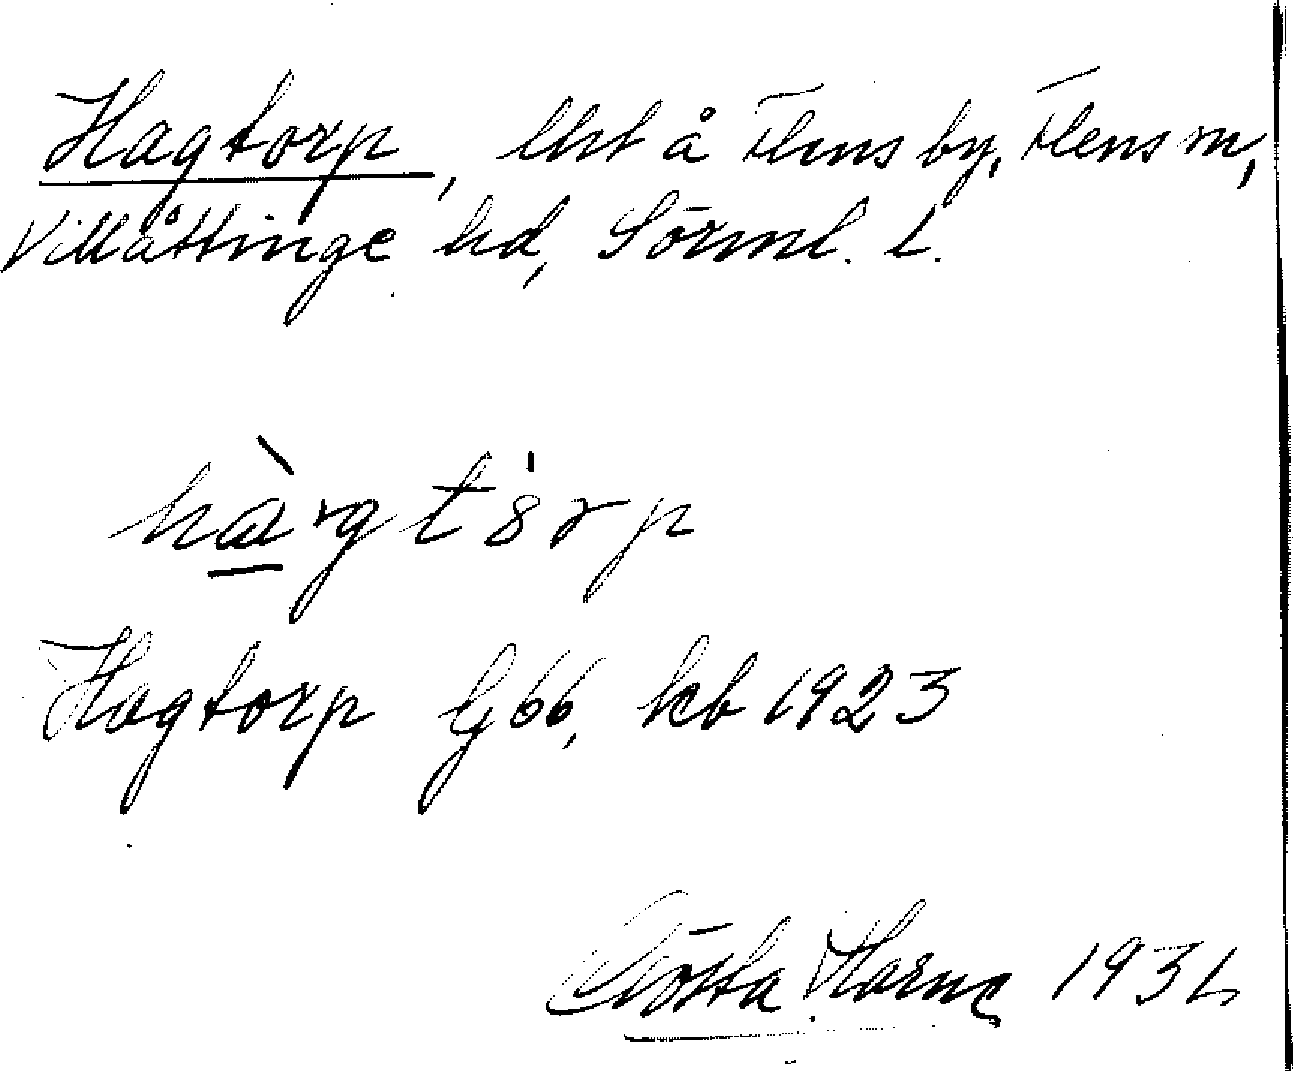 Hagtorp, lht å Flens by, Flens sn,
Villåttinge hd, Sörml. L.
hàgtorp
Hagtorp G66, kb 1923
Gösta Harne 1931